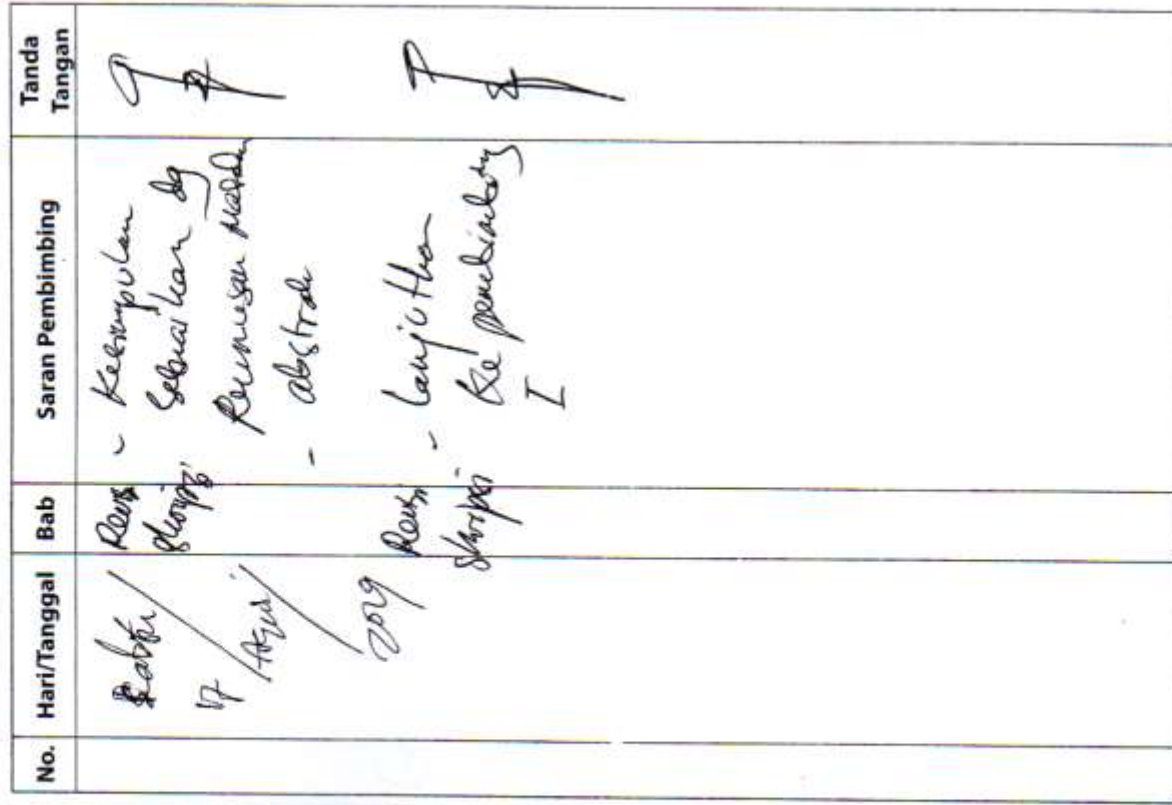 No. Hari/Tanggal Bab Saran Pembimbing Tanda Tangan
Sabtu/
17/
2019
Revisi
skripsi
- Kesimpulan
sesuaikan dg
Rumusan masalah
- abstrak
Revisi
skripsi
- Lanjutkan
ke pembimbing
I